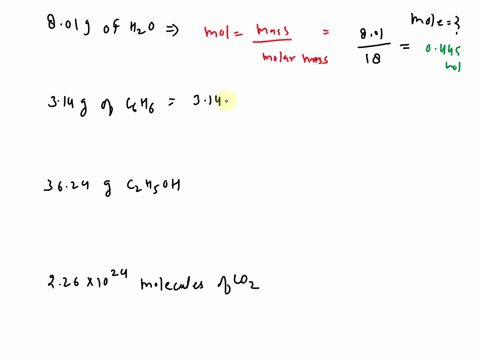 8.01 g of H2O ⇒ mol = mass / molar mass = 8.01 / 18 = 0.445 mol
mole = ?
3.14 g of C6H6 = 3.14
36.24 g C2H5OH
2.26 × 10^24 molecules of CO2